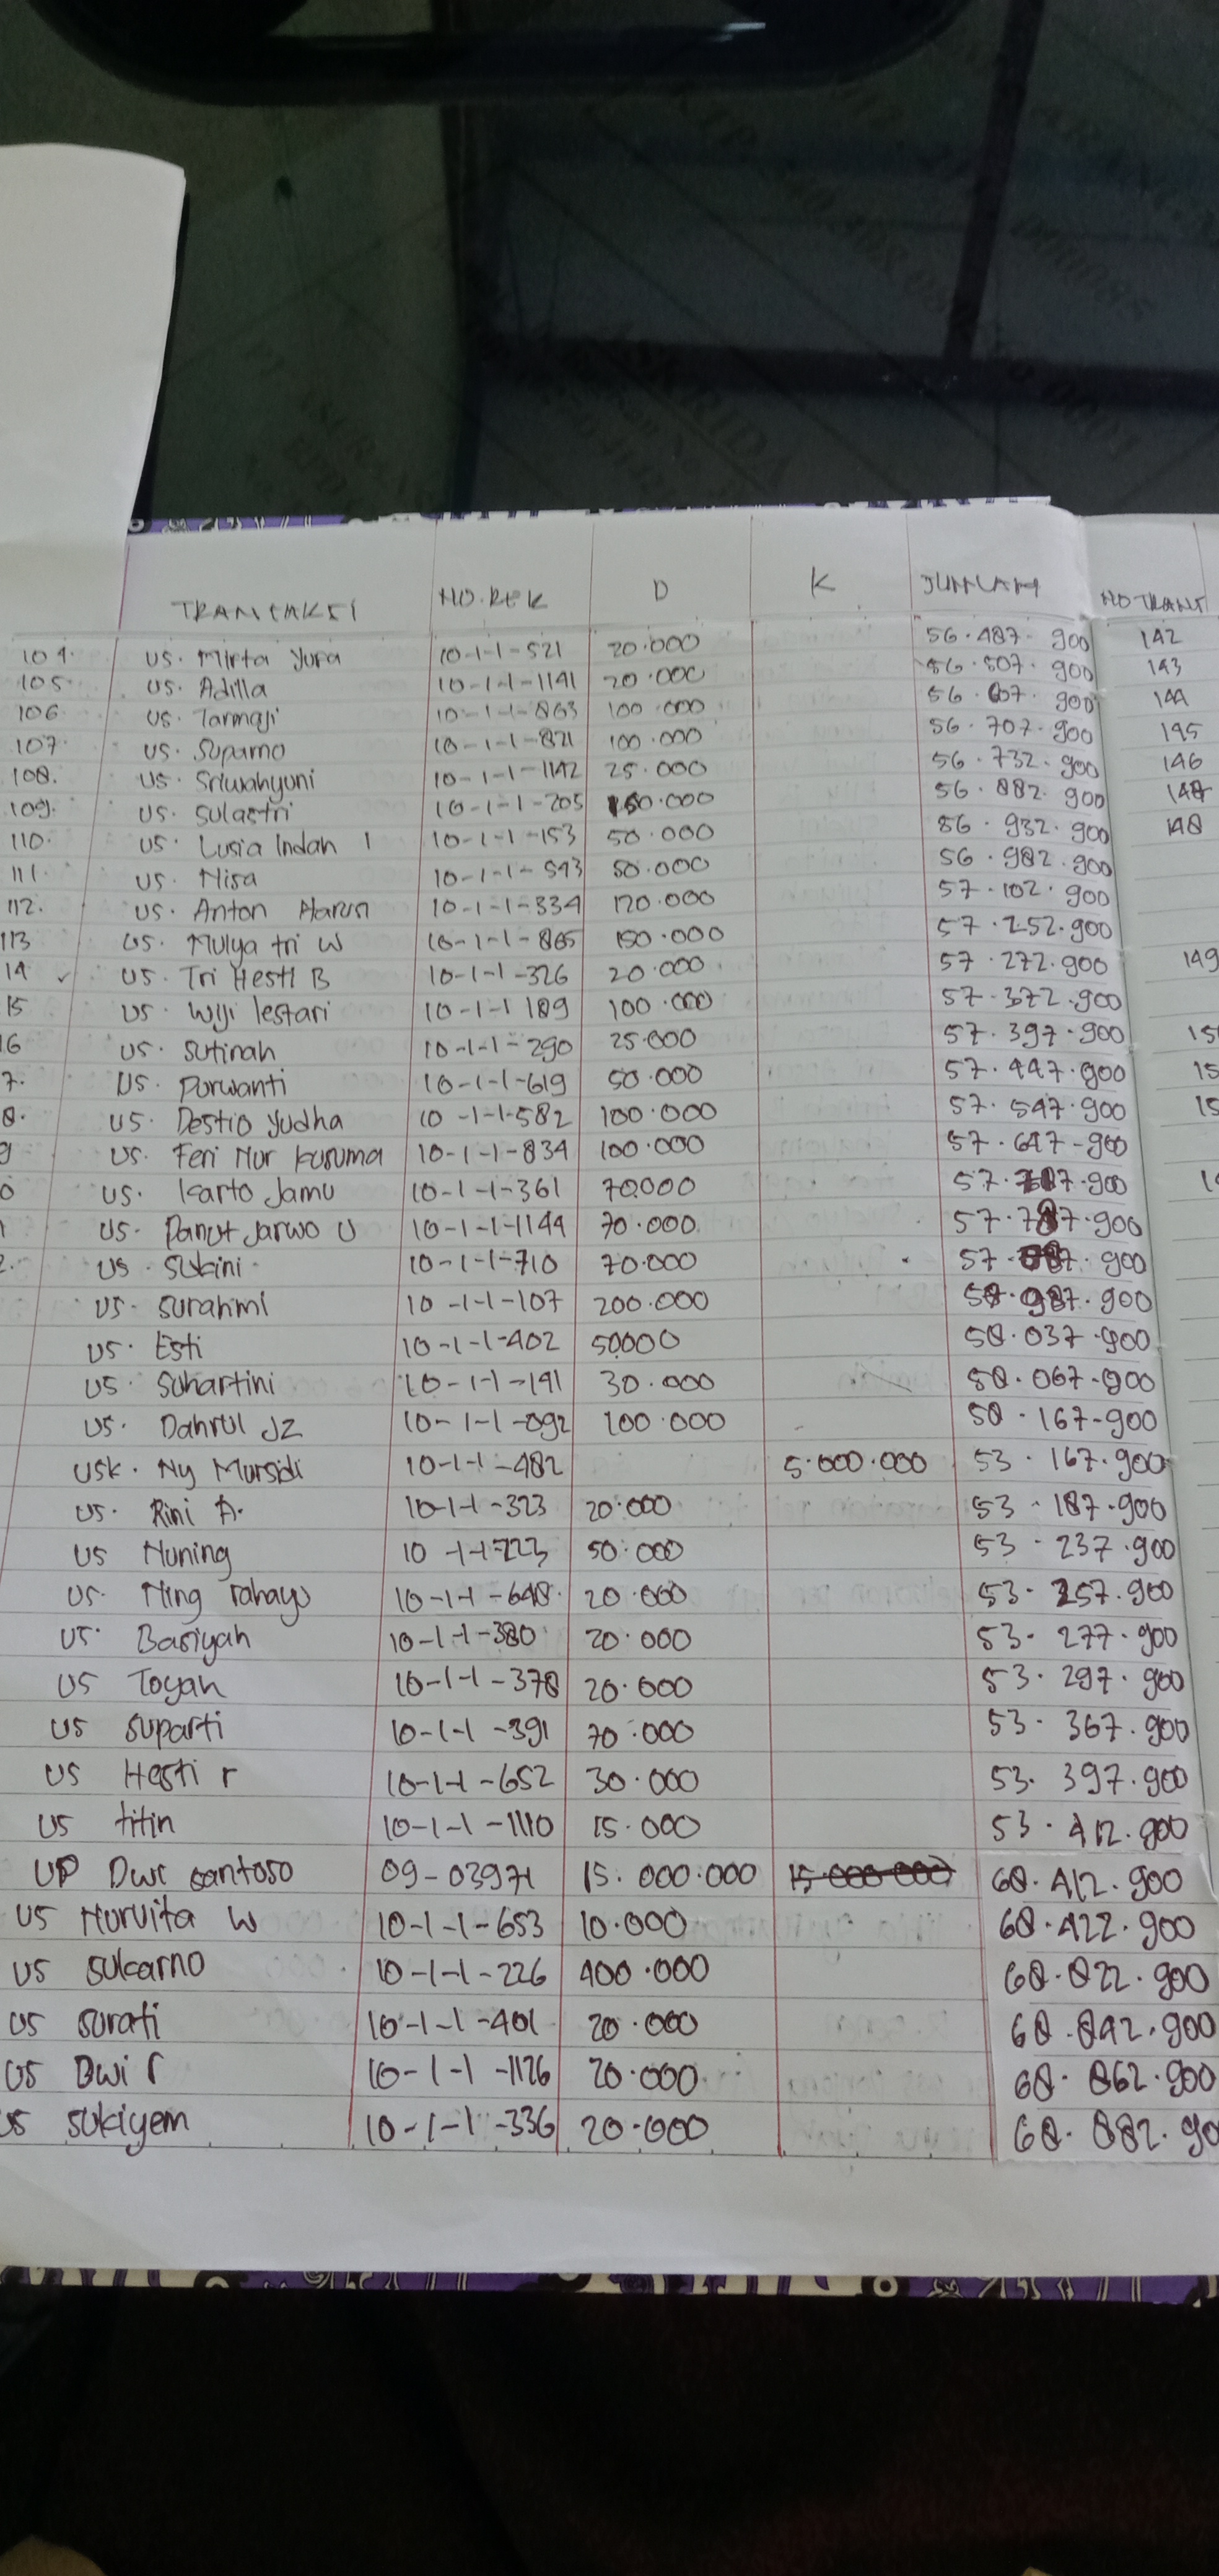 TRANSAKSI NO. REK D K JUMLAH NO TRANS
104. US. Mirta Yura 10-1-1-521 20.000 56.487.900 142
105. US. Adilla 10-1-1-1141 20.000 56.507.900 143
106. US. Tarmaji 10-1-1-863 100.000 56.607.900 144
107. US. Suparno 10-1-1-821 100.000 56.707.900 145
108. US. Sriwahyuni 10-1-1-1142 25.000 56.732.900 146
109. US. Sulastri 10-1-1-205 150.000 56.882.900 147
110. US. Lusia Indah I 10-1-1-153 50.000 56.932.900 148
111. US. Nisa 10-1-1-543 50.000 56.982.900
112. US. Anton Harun 10-1-1-334 120.000 57.102.900
113 US. Mulya tri W 10-1-1-865 150.000 57.252.900
14 US. Tri Hesti B 10-1-1-326 20.000 57.272.900 149
15 US. Wiji lestari 10-1-1 189 100.000 57.372.900
16 US. Sutinah 10-1-1-290 25.000 57.397.900 15
7. US. Purwanti 10-1-1-619 50.000 57.447.900 15
8. US. Destio Yudha 10-1-1-582 100.000 57.547.900 15
9 US. Feri Nur Kusuma 10-1-1-834 100.000 57.647-900
0 US. Karto Jamu 10-1-1-361 70.000 57.717.900
1 US. Panut Jarwo U 10-1-1-1144 70.000 57.787.900
2. US. Sukini 10-1-1-710 70.000 900
US. Surahmi 10-1-1-107 200.000 987.900
US. Esti 10-1-1-402 50.000 58.037.900
US. Suhartini 10-1-1-191 30.000 58.067-900
US. Dahrul JZ 10-1-1-092 100.000 58.167-900
USK. Ny Mursidi 10-1-1-482 5.000.000 53.167.900
US. Rini A. 10-1-1-323 20.000 53.187.900
US Nuning 10-1-1-223 50.000 53.237.900
US. Ning Rahayu 10-1-1-648 20.000 53.257.900
US. Basiyah 10-1-1-380 20.000 53.277.900
US Toyah 10-1-1-378 20.000 53.297.900
US Suparti 10-1-1-391 70.000 53.367.900
US Hesti r 10-1-1-652 30.000 53.397.900
US titin 10-1-1-1110 15.000 53.412.900
UP Dwi santoso 09-03971 15.000.000 15.000.000 68.412.900
US Nurvita W 10-1-1-653 10.000 68.422.900
US Sukarno 10-1-1-226 400.000 68.822.900
US surati 10-1-1-401 20.000 68.842.900
US Dwi r 10-1-1-1126 20.000 68.862.900
US sukiyem 10-1-1-336 20.000 68.882.90